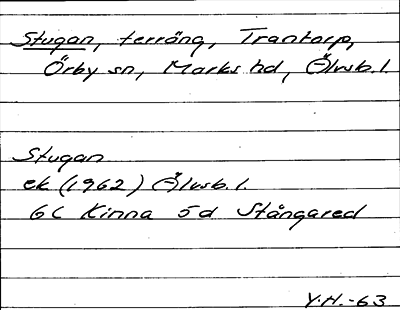 Stugan, terräng, Trantorp,
Örby sn, Marks hd, Älvsb. l.
Stugan
ek (1962) Älvsb. l.
6C Kinna 5d Stångared
Y.H.-63